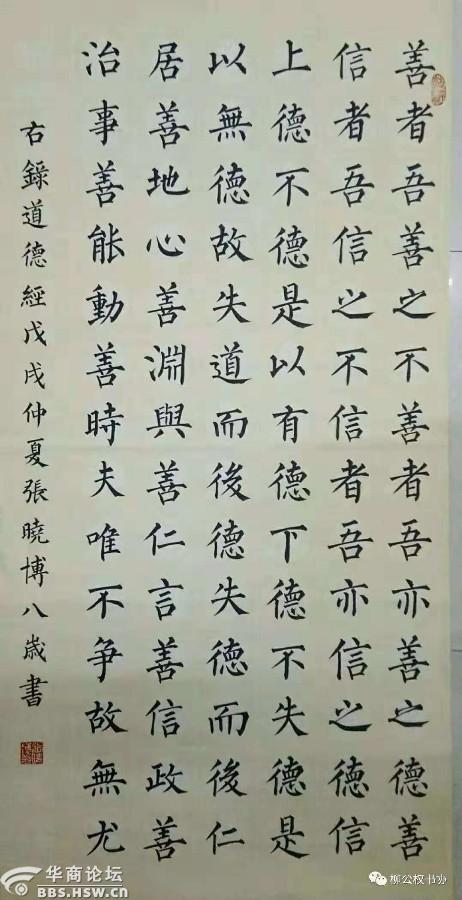 善者吾善之不善者吾亦善之德善
信者吾信之不信者吾亦信之德信
上德不德是以有德下德不失德是
以無德故失道而後德失德而後仁
居善地心善淵與善仁言善信政善
治事善能動善時夫唯不争故無尤
右錄道德經戊戌仲夏張曉博八歲書
华商论坛
BBS.HSW.CN
柳公权书协